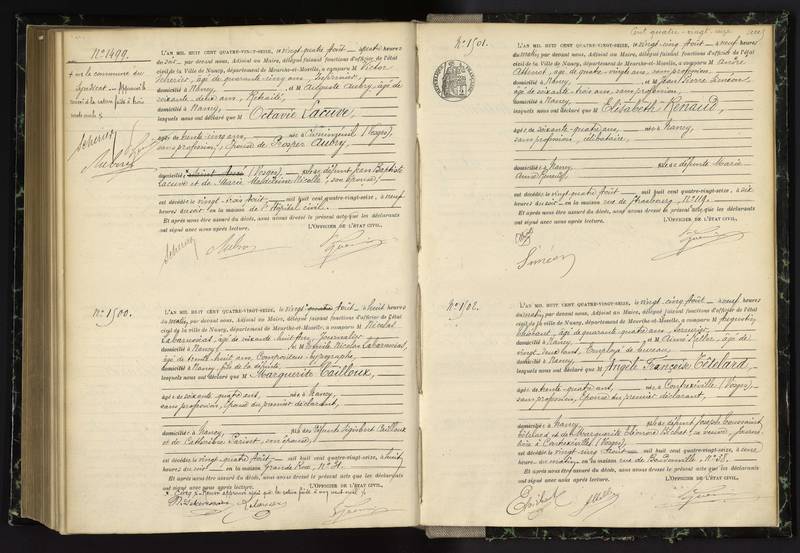 N° 1499.
L'AN MIL HUIT CENT QUATRE-VINGT-SEIZE, le vingt-quatre Août — à quatre heures
du soir, par devant nous, Adjoint au Maire, délégué faisant fonctions d'officier de l'état
civil de la ville de Nancy, département de Meurthe-et-Moselle, a comparu M Victor
Scherrer, âgé de quarante-cinq ans, Infirmier,
domicilié à Nancy, et M Auguste Aubry, âgé de
soixante-deux ans, Retraité,
domicilié à Nancy,
lesquels nous ont déclaré que M Octavie Lacuve,
âgée de trente-cinq ans, née à (Vosges),
sans profession, Épouse de Prosper Aubry,
domiciliée (Vosges), fille de défunt Jean Baptiste
Lacuve et de Marie Madeleine Nicolle, son épouse,
est décédée le vingt-trois Août — mil huit cent quatre-vingt-seize, à neuf
heures du soir en la maison de l'hôpital civil.
Et après nous être assuré du décès, nous avons dressé le présent acte que les déclarants
ont signé avec nous après lecture. L'OFFICIER DE L'ÉTAT CIVIL,
Scherrer Aubry
N° 1500.
L'AN MIL HUIT CENT QUATRE-VINGT-SEIZE, le vingt-quatre Août, à huit heures
du matin, par devant nous, Adjoint au Maire, délégué faisant fonctions d'officier de l'état
civil de la ville de Nancy, département de Meurthe-et-Moselle, a comparu M Nicolas
âgé de soixante-huit ans, Journalier
domicilié à Nancy, et M Nicolas
âgé de trente-huit ans, Compositeur-typographe,
domicilié à Nancy, fils de la défunte,
lesquels nous ont déclaré que M Marguerite Cailloux,
âgée de soixante-quatre ans, née à Nancy,
sans profession, Épouse du premier déclarant,
domiciliée à Nancy, fille des défunts Cailloux
et de Catherine son épouse,
est décédée le vingt-quatre Août — mil huit cent quatre-vingt-seize, à huit
heures du soir en la maison Grande Rue, N°
Et après nous être assuré du décès, nous avons dressé le présent acte que les déclarants
ont signé avec nous après lecture.
L'OFFICIER DE L'ÉTAT CIVIL,
N° 1501.
L'AN MIL HUIT CENT QUATRE-VINGT-SEIZE, le vingt-cinq Août, à neuf heures
du matin, par devant nous, Adjoint au Maire, délégué faisant fonctions d'officier de l'état
civil de la Ville de Nancy, département de Meurthe-et-Moselle, a comparu M André
âgé de quatre-vingts ans, sans profession,
domicilié à Nancy, et M Jean Pierre Siméon,
âgé de soixante-trois ans, sans profession,
domicilié à Nancy,
lesquels nous ont déclaré que M Elisabeth Renaud,
âgée de soixante-quatre ans, née à Nancy,
sans profession, célibataire,
domiciliée à Nancy, fille de défunte Marie-
Anne
est décédée le vingt-quatre Août — mil huit cent quatre-vingt-seize, à six
heures du soir en la maison rue de Strasbourg, N° 119.
Et après nous être assuré du décès, nous avons dressé le présent acte que les déclarants
ont signé avec nous après lecture. L'OFFICIER DE L'ÉTAT CIVIL,
Siméon
N° 1502.
L'AN MIL HUIT CENT QUATRE-VINGT-SEIZE, le vingt-cinq Août, à neuf heures
du matin, par devant nous, Adjoint au Maire, délégué faisant fonctions d'officier de l'état
civil de la Ville de Nancy, département de Meurthe-et-Moselle, a comparu M Augustin
âgé de quarante-quatre ans,
domicilié à Nancy, et M Aimé Keller, âgé de
vingt-deux ans, Employé de bureau,
domicilié à Nancy,
lesquels nous ont déclaré que M Angèle Françoise Têtelard,
âgée de trente-quatre ans, née à Contrexéville (Vosges),
sans profession, Épouse du premier déclarant,
domiciliée à Nancy, fille de défunt Joseph Toussaint
Têtelard et de Marguerite Eléonore sa veuve,
à Contrexéville (Vosges),
est décédée le vingt-cinq Août — mil huit cent quatre-vingt-seize, à
heures du matin, en la maison rue de N° 38.
Et après nous être assuré du décès, nous avons dressé le présent acte que les déclarants
ont signé avec nous après lecture. L'OFFICIER DE L'ÉTAT CIVIL,